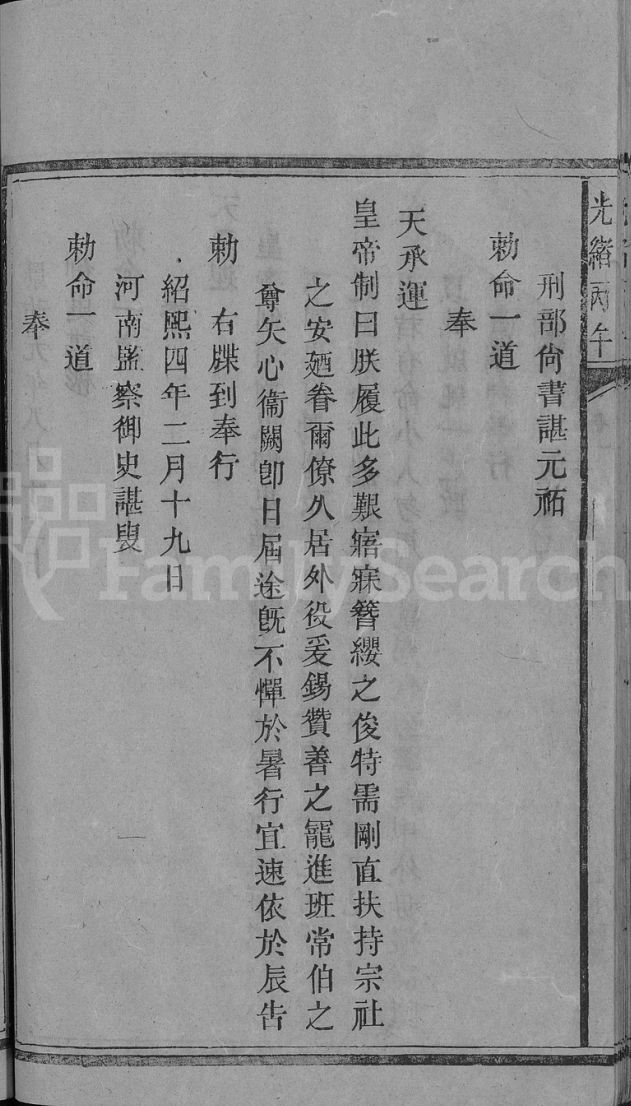 光緒丙午
刑部尙書諶元祐
勅命一道
奉
天承運
皇帝制曰朕履此多艱寤寐簪纓之俊特需剛直扶持宗社
之安廼眷爾僚久居外役爰錫贊善之寵進班常伯之
尊矢心衞闕卽日屆途旣不憚於暑行宜速依於辰告
勅　右牒到奉行
紹熙四年二月十九日
河南監察御史諶叟
勅命一道
奉
FamilySearch